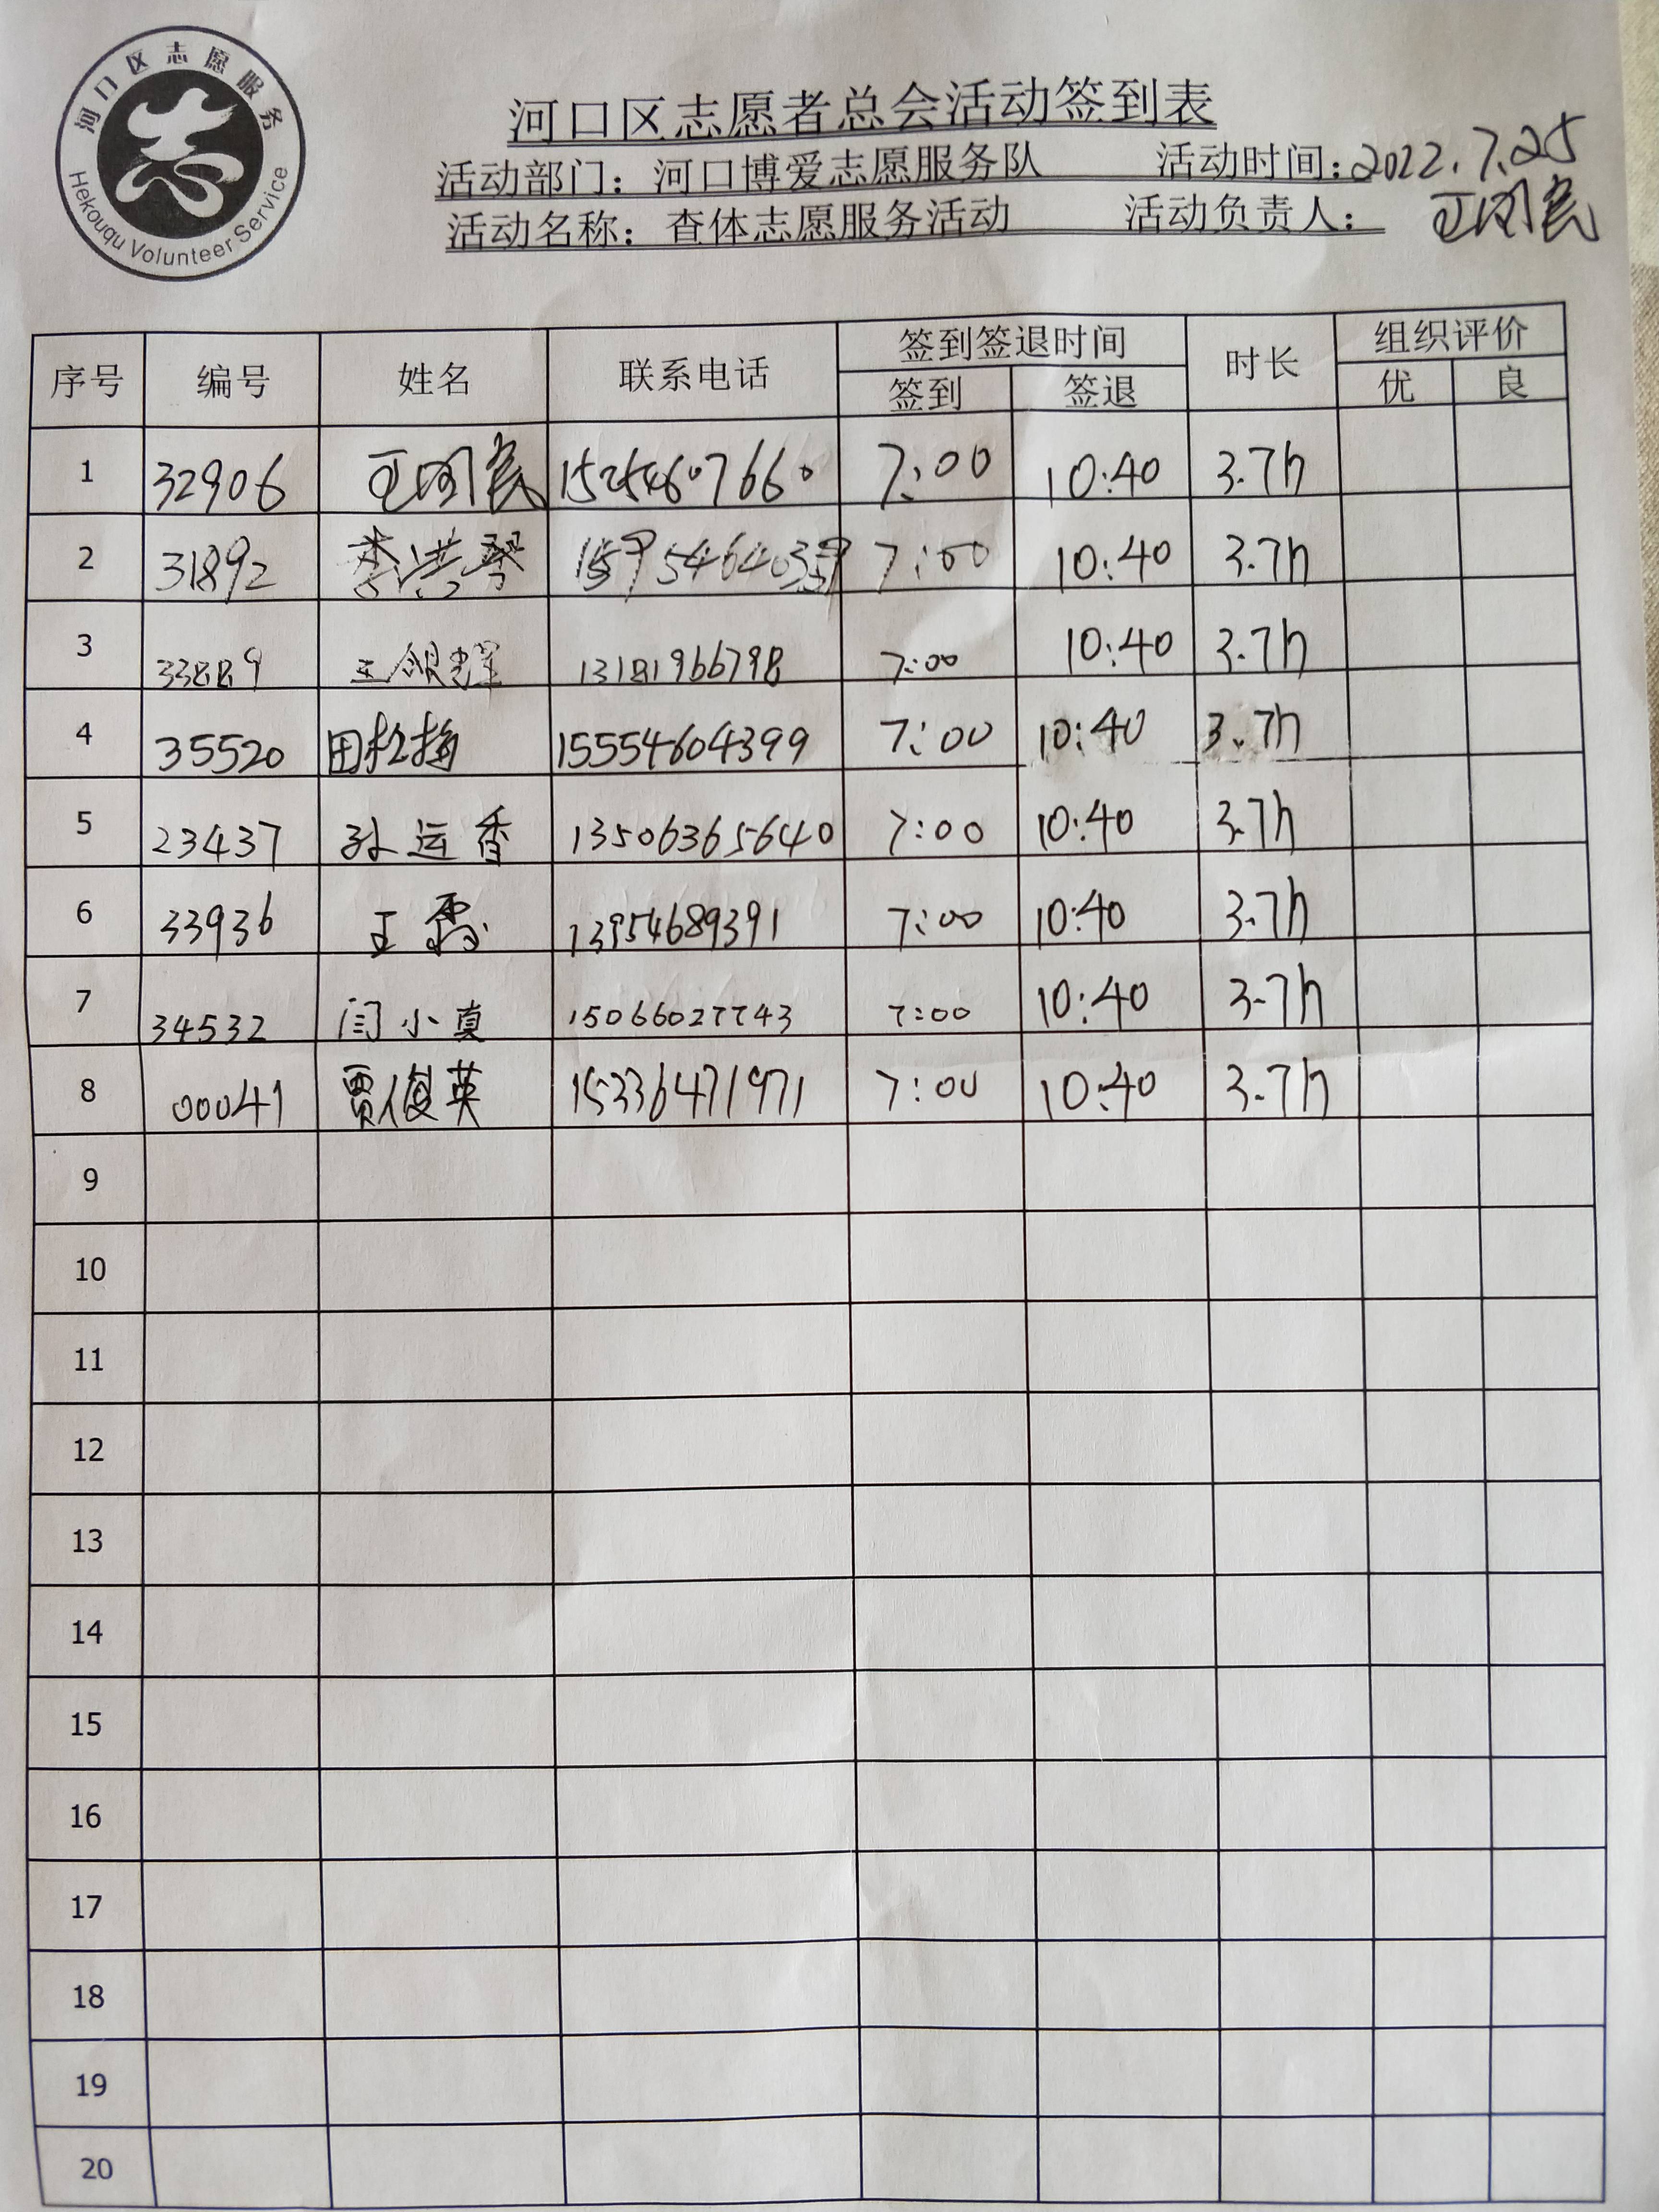 河口区志愿服务
Hekouqu Volunteer Service
河口区志愿者总会活动签到表
活动部门：河口博爱志愿服务队 活动时间：2022.7.25
活动名称：查体志愿服务活动 活动负责人：
序号 编号 姓名 联系电话 签到签退时间 时长 组织评价
签到 签退 优 良
1 32906 15254607660 7:00 10:40 3.7h
2 31892 李洪琴 7:00 10:40 3.7h
3 33889 王银辉 13181966798 7:00 10:40 3.7h
4 35520 田松梅 15554604399 7:00 10:40 3.7h
5 23437 孙运香 13506365640 7:00 10:40 3.7h
6 33936 王 13954689391 7:00 10:40 3.7h
7 34532 闫小真 15066027743 7:00 10:40 3.7h
8 00041 贾俊英 15336471971 7:00 10:40 3.7h
9
10
11
12
13
14
15
16
17
18
19
20